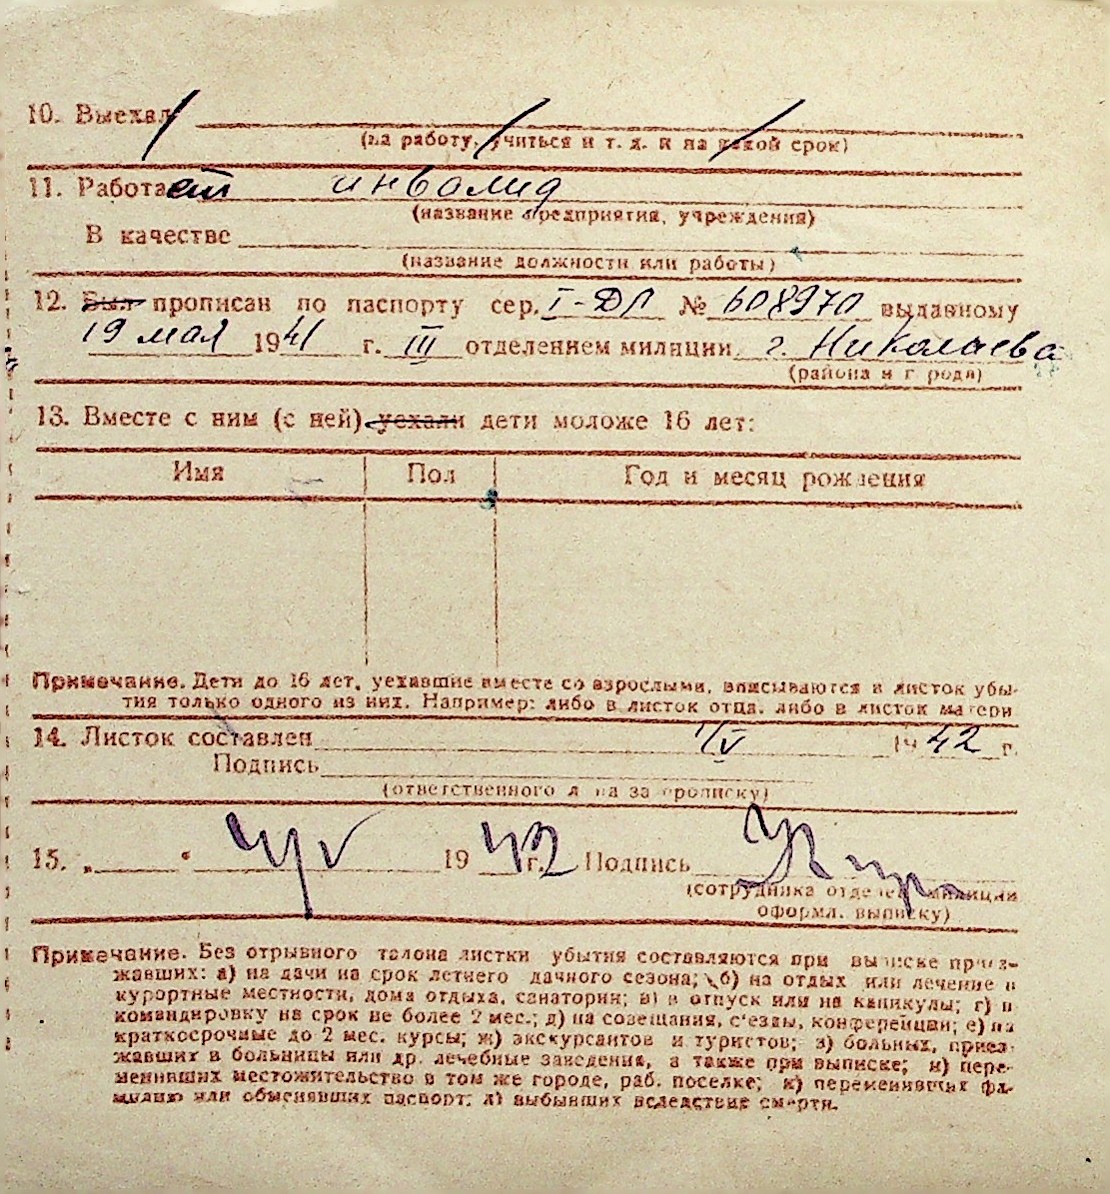 10. Выехал
(на работу, учиться и т. д. и на какой срок)
11. Работает инвалид
(название предприятия, учреждения)
В качестве
(название должности или работы)
12. Был прописан по паспорту сер. I-ДЛ № 608970 выданному
19 мая 1941 г. III отделением милиции г. Николаева
(района и города)
13. Вместе с ним (с ней) уехали дети моложе 16 лет:
Имя Пол Год и месяц рождения
Примечание. Дети до 16 лет, уехавшие вместе со взрослыми, вписываются в листок убы-
тия только одного из них. Например: либо в листок отца, либо в листок матери
14. Листок составлен 1/V 1942 г.
Подпись
(ответственного лица за прописку)
15. „ “ 4/V 1942 г. Подпись
(сотрудника отделен. милиции
оформл. выписку)
Примечание. Без отрывного талона листки убытия составляются при выписке приез-
жавших: а) на дачи на срок летнего дачного сезона; б) на отдых или лечение в
курортные местности, дома отдыха, санатории; в) в отпуск или на каникулы; г) в
командировку на срок не более 2 мес.; д) на совещания, с'езды, конференции; е) на
краткосрочные до 2 мес. курсы; ж) экскурсантов и туристов; з) больных, приез-
жавших в больницы или др. лечебные заведения, а также при выписке; и) пере-
менивших местожительство в том же городе, раб. поселке; к) переменивших фа-
милию или обменявших паспорт; л) выбывших вследствие смерти.